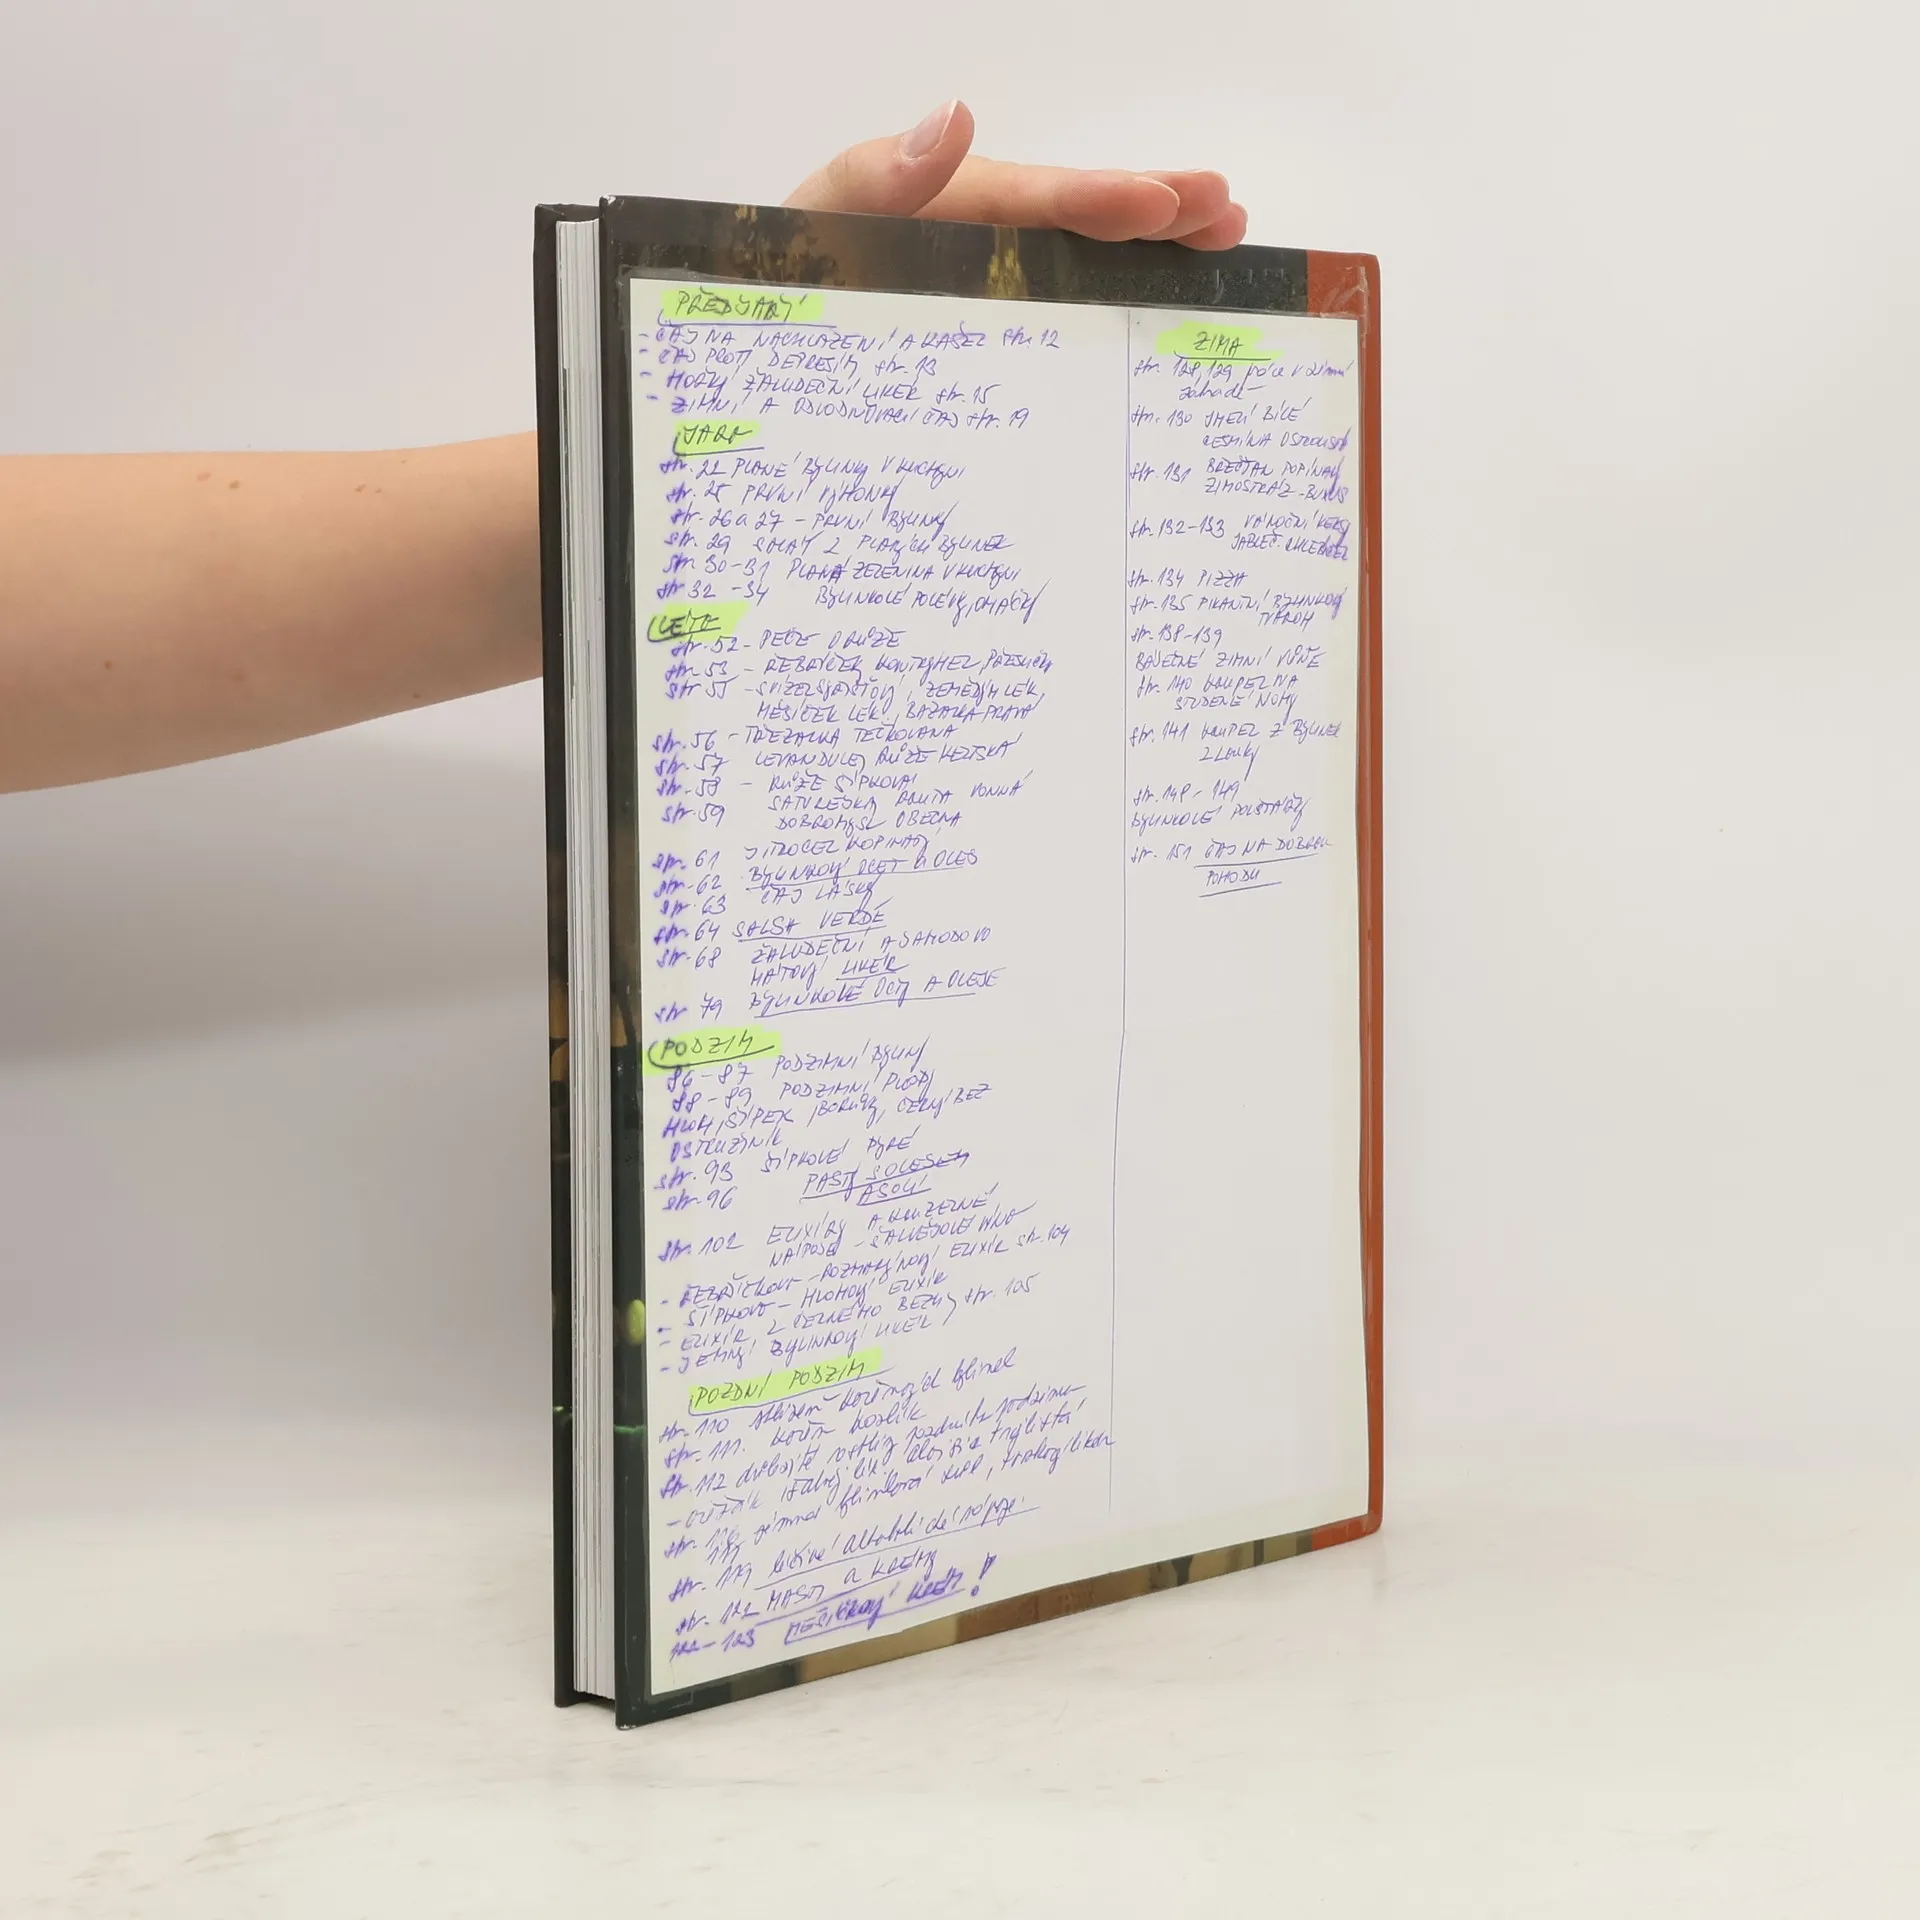 PŘEDJARÍ
- ČAJ NA NACHLAZENÍ A KAŠEL str. 12
- ČAJ PROTI DEPRESÍM str. 13
- HOŘKÝ ŽALUDEČNÍ LIKÉR str. 15
- ZIMNÍ A ODVODŇOVACÍ ČAJ str. 19
JARO
str. 22 PLANÉ BYLINKY V KUCHYNI
str. 25 PRVNÍ VÝHONKY
str. 26 a 27 - PRVNÍ BYLINKY
str. 29 SALÁT Z PLANÝCH BYLINEK
str. 30-31 PLANÁ ZELENINA V KUCHYNI
str 32 - 34 BYLINKOVÉ POLÉVKY, OMÁČKY
LÉTO
str. 52 - PÉČE O RŮŽE
str. 53 - ŘEBŘÍČEK KONTRYHEL, PŘESLIČKA
str 55 - SVÍZEL SYŘIŠŤOVÝ, ZEMĚDÝM LÉK,
MĚSÍČEK LÉK., BAZALKA PRAVÁ
str. 56 - TŘEZALKA TEČKOVANÁ
str. 57 LEVANDULE, RŮŽE KELTSKÁ
str. 58 - RŮŽE ŠÍPKOVÁ
str. 59 SATUREJKA, ROUTA VONNÁ
DOBROMYSL OBECNÁ
str. 61 JITROCEL KOPINATÝ
str. 62 BYLINKOVÝ OCET A OLEJ
str. 63 ČAJ LÁSKY
str. 64 SALSA VERDE
str. 68 ŽALUDEČNÍ A SAMODOVO
MÁTOVÝ LIKÉR
str 79 BYLINKOVÉ OCTY A OLEJE
PODZIM
86 - 87 PODZIMNÍ BYLINY
88 - 89 PODZIMNÍ PLODY
HLOH, ŠÍPEK, BORŮVKY, ČERNÝ BEZ
OSTRUŽINÍK
str. 93 ŠÍPKOVÉ PYRÉ
str. 96 PASTY S OLEJEM
A SOLÍ
str. 102 ELIXÍRY A KOUZELNÉ
NÁPOJE - ŠALVĚJOVÉ VÍNO
- ŘEBŘÍČKOVO - ROZMARÝNOVÝ ELIXÍR str. 104
- ŠÍPKOVO - HLOHOVÝ ELIXÍR
- ELIXÍR Z ČERNÉHO BEZU } str. 105
- JEMNÝ BYLINKOVÝ LIKÉR
POZDNÍ PODZIM
str. 110 sklizeň kořenových bylinek
str. 111. kořen kozlík
str. 112 důležité rostliny pozdního podzimu
str. 116 zimná bylinková
117
str. 119 léčivé alkoholické nápoje
str. 122 MASTI a KRÉMY
122 - 123 MĚSÍČKOVÝ KRÉM !
ZIMA
str. 128, 129 práce v zimní
zahradě
str. 130 JMELÍ BÍLÉ
CESMÍNA OSTROLISTÁ
str. 131 BŘEČŤAN POPÍNAVÝ
ZIMOSTRÁZ - BUXUS
str. 132 - 133 VÁNOČNÍ KEKSY
JABLEČ. CHLEBÍČEK
str. 134 PIZZA
str. 135 PIKANTNÍ BYLINKOVÝ
TVAROH
str. 138-139
BÁJEČNÉ ZIMNÍ VŮNĚ
str. 140 KOUPEL NA
STUDENÉ NOHY
str. 141 KOUPEL Z BYLINEK
Z Louky
str. 148 - 149
BYLINKOVÉ POLŠTÁŘKY
str. 151 ČAJ NA DOBROU
POHODU